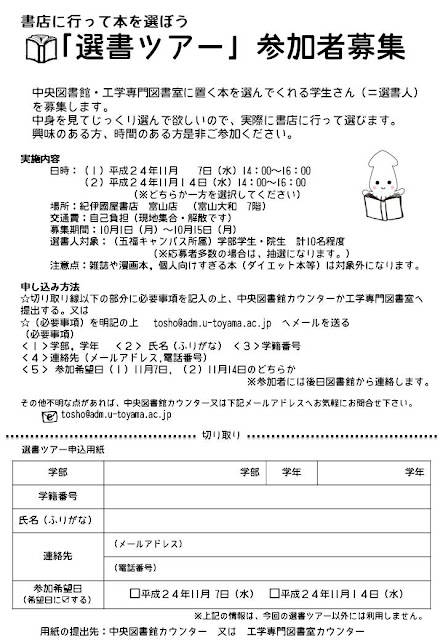 書店に行って本を選ぼう
「選書ツアー」参加者募集
中央図書館・工学専門図書室に置く本を選んでくれる学生さん（＝選書人）
を募集します。
中身を見てじっくり選んで欲しいので、実際に書店に行って選びます。
興味のある方、時間のある方是非ご参加ください。
実施内容
日時：（１）平成２４年１１月　７日（水）１４：００～１６：００
（２）平成２４年１１月１４日（水）１４：００～１６：００
（※どちらか一方を選択してください）
場所：紀伊國屋書店　富山店　（富山大和　７階）
交通費：自己負担（現地集合・解散です）
募集期間：１０月１日（月）～１０月１５日（月）
選書人対象：（五福キャンパス所属）学部学生・院生　計１０名程度
（※応募者多数の場合は、抽選になります。）
注意点：雑誌や漫画本、個人向けすぎる本（ダイエット本等）は対象外になります。
申し込み方法
☆切り取り線以下の部分に必要事項を記入の上、中央図書館カウンターか工学専門図書室へ
提出する。又は
☆（必要事項）を明記の上　tosho@adm.u-toyama.ac.jp　へメールを送る
（必要事項）
＜１＞学部，学年　＜２＞　氏名（ふりがな）　＜３＞学籍番号
＜４＞連絡先（メールアドレス,電話番号）
＜５＞　参加希望日（１）１１月７日，（２）１１月１４日のどちらか
※参加者には後日図書館から連絡します。
その他不明な点があれば、中央図書館カウンター又は下記メールアドレスへお気軽にお問合せ下さい。
tosho@adm.u-toyama.ac.jp
切り取り
選書ツアー申込用紙
学部　学部　学年　学年
学籍番号
氏名（ふりがな）
連絡先
（メールアドレス）
（電話番号）
参加希望日
（希望日に☑する）
□平成２４年１１月　７日（水）　□平成２４年１１月１４日（水）
※上記の情報は、今回の選書ツアー以外には利用しません。
用紙の提出先：中央図書館カウンター　又は　工学専門図書室カウンター